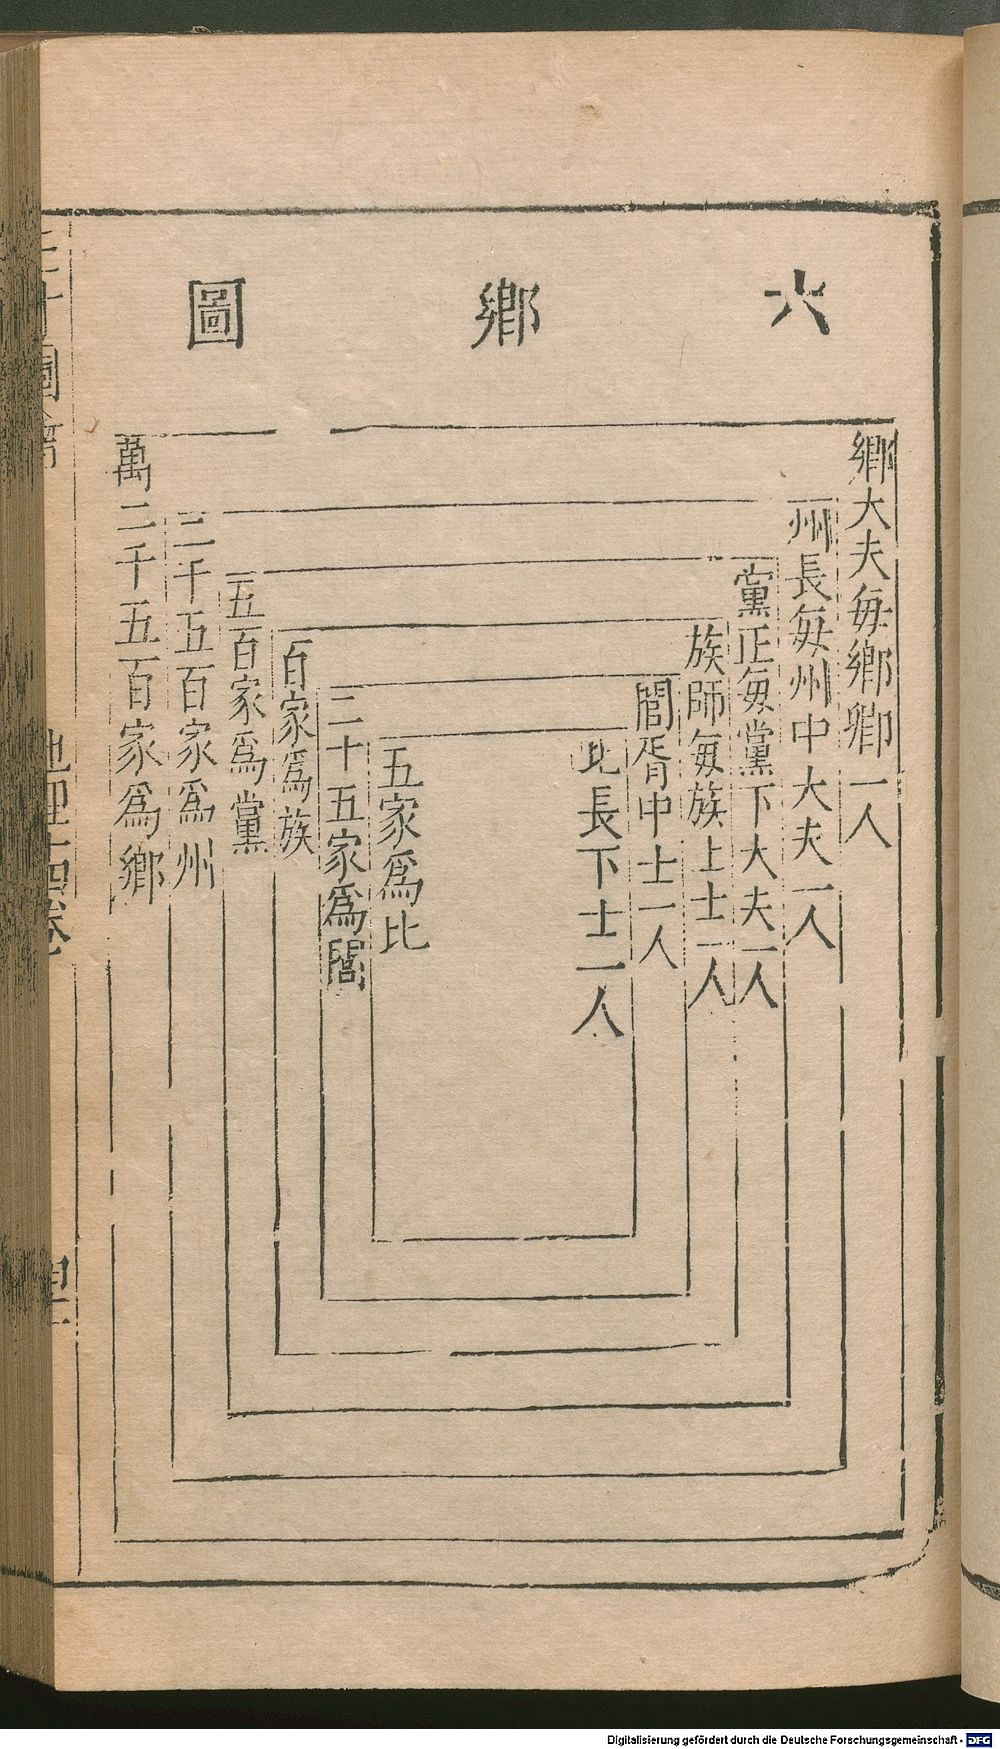 六鄉圖
鄉大夫每鄉卿一人
州長每州中大夫一人
黨正每黨下大夫一人
族師每族上士一人
閭胥中士一人
比長下士一人
五家爲比
二十五家爲閭
百家爲族
五百家爲黨
二千五百家爲州
萬二千五百家爲鄉
三才圖會
地理十四卷
Digitalisierung gefördert durch die Deutsche Forschungsgemeinschaft - DFG